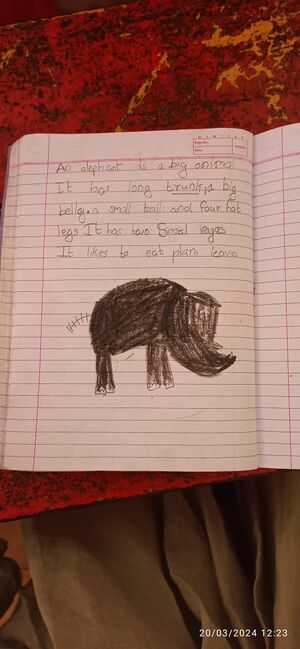 M T W T F S S
Page No.:
Date:
YOUVA
An elephant is a big animal
It has long trunk,a big
belly,a small tail and four fat
legs It has two Smal eayes
It likes to eat plam leaves
20/03/2024 12:23